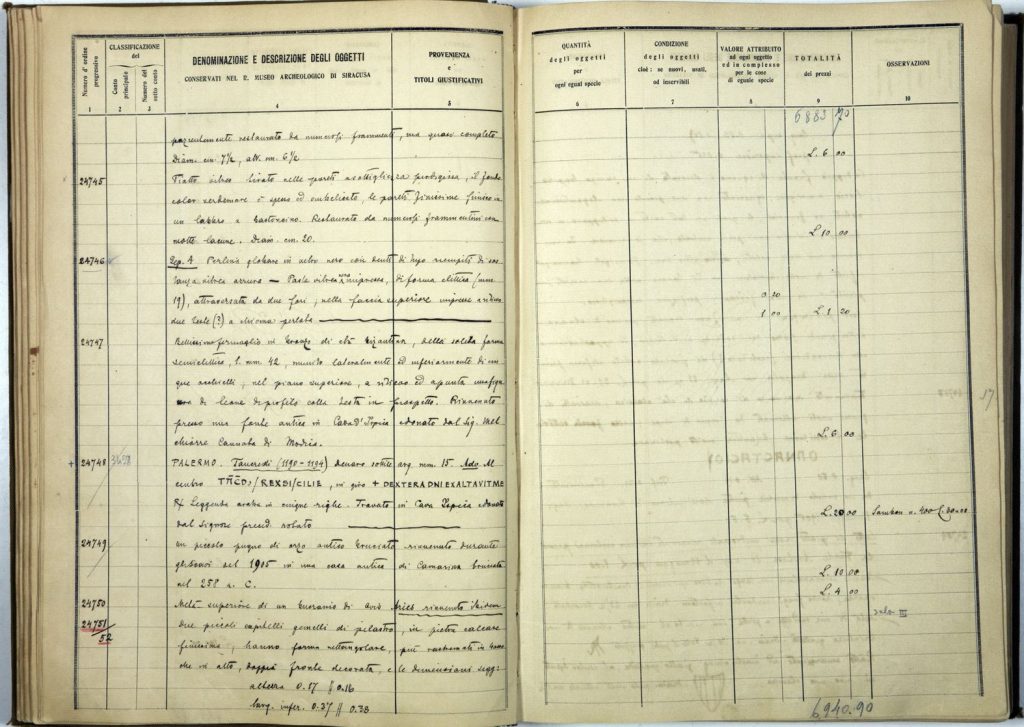 Numero d'ordine progressivo
CLASSIFICAZIONE del
Conto principale
Numero del sotto conto
DENOMINAZIONE E DESCRIZIONE DEGLI OGGETTI
CONSERVATI NEL R. MUSEO ARCHEOLOGICO DI SIRACUSA
PROVENIENZA
e
TITOLI GIUSTIFICATIVI
1 2 3 4 5
restaurato da numerosi frammenti, ma quasi completo
Diam. cm. 7½, alt. cm. 6½
24745
Piatto vitreo tirato nelle pareti a sottigliezza prodigiosa, il fondo
color verdemare è spesso ed ombelicato, le pareti finissime finisco
un labbro a bastoncino. Restaurato da numerosi frammentini con
molte lacune. Diam. cm. 20.
24746
Sep. A Perlina globare in vetro nero con denti di lupo riempiti di sos
tanza vitrea azzurra — Pasta vitrea nera impressa, di forma ellittica (mm
19), attraversata da due fori; nella faccia superiore impresse
due teste (?) a chioma perlata
24747
Bellissimo fermaglio in bronzo di età bizantina, della solita forma
semiellittica, l. mm. 42, munito lateralmente ed inferiormente di cin
que occhielli; nel piano superiore, a ed a punta una figu
ra di leone di profilo colla testa in prospetto. Rinvenuto
presso una fonte antica in Cava d'Ispica e donato dal Sig. Mel
chiorre Cannata di Modica.
+ 24748
PALERMO. Tancredi (1190-1194) denaro sottile arg. mm. 15. Ado. Al
centro TACD/REXSI/CILIE, in giro + DEXTERADNIEXALTAVITME
R/ Leggenda araba in cinque righe. Trovato in Cava Ispica e donato
dal Signore
24749
Un piccolo pugno di orzo antico bruciato rinvenuto durante
gli scavi del 1905 in una casa antica di Camarina bruciata
nel 258 a. C.
24750
Metà superiore di un cranio di ovis Aries rinvenuto ibidem
24751/52
Due piccoli capitelli gemelli di pilastro, in pietra calcare
finissima, hanno forma rettangolare, più rastremati in basso
che in alto, doppia fronte decorata, e le dimensioni segg:
altezza 0.17 // 0.16
larg. infer. 0.37 // 0.38
QUANTITÀ
degli oggetti
per
ogni egual specie
CONDIZIONE
degli oggetti
cioè: se nuovi, usati,
od inservibili
VALORE ATTRIBUITO
ad ogni oggetto
ed in complesso
per le cose
di eguale specie
TOTALITÀ
dei prezzi
OSSERVAZIONI
6 7 8 9 10
6883 70
L. 6 00
L. 10 00
0 20
1 00 L. 1 20
L. 6 00
L. 20 00 Sambon n. 400
L. 10 00
L. 4 00
sala III
6940.90